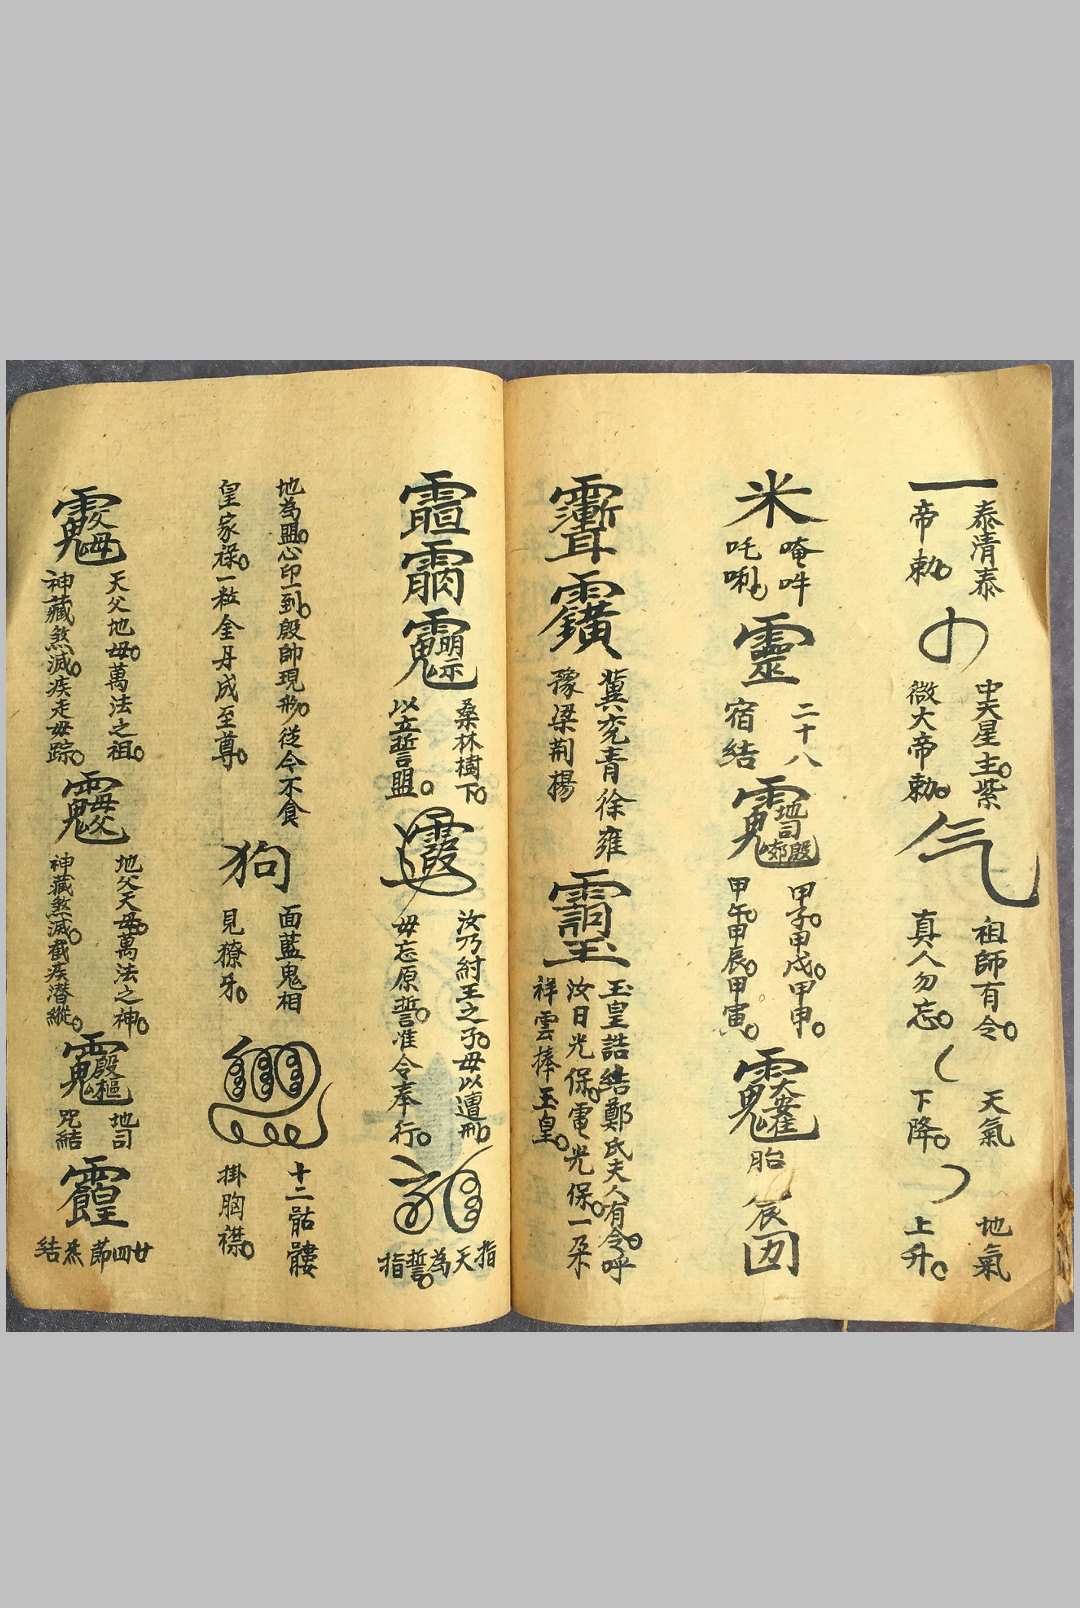 一
泰清泰
帝勅
中天星主紫
微大帝勅
祖師有令
真人勿忘
天氣
下降
地氣
上升
米
唵吽
吒唎
靈
二十八
宿結
甲子甲戌甲申
甲午甲辰甲寅
胎
冀兖青徐雍
豫梁荆揚
玉皇誥結鄭氏夫人有令呼
汝日光保電光保一朶
祥雲捧玉皇
桑林樹下
以立誓盟
汝乃紂王之子毋以遭刑
毋忘原誓准令奉行
指天為誓指
地為盟心印一到殷帥現形從今不食
皇家祿一粒金丹成至尊
狗
面藍鬼相
見獠牙
十二骷髏
掛胸襟
天父地母萬法之祖
神藏煞滅疾走毋踪
地父天母萬法之神
神藏煞滅截疾潜縱
地司
咒結
廿四節炁結